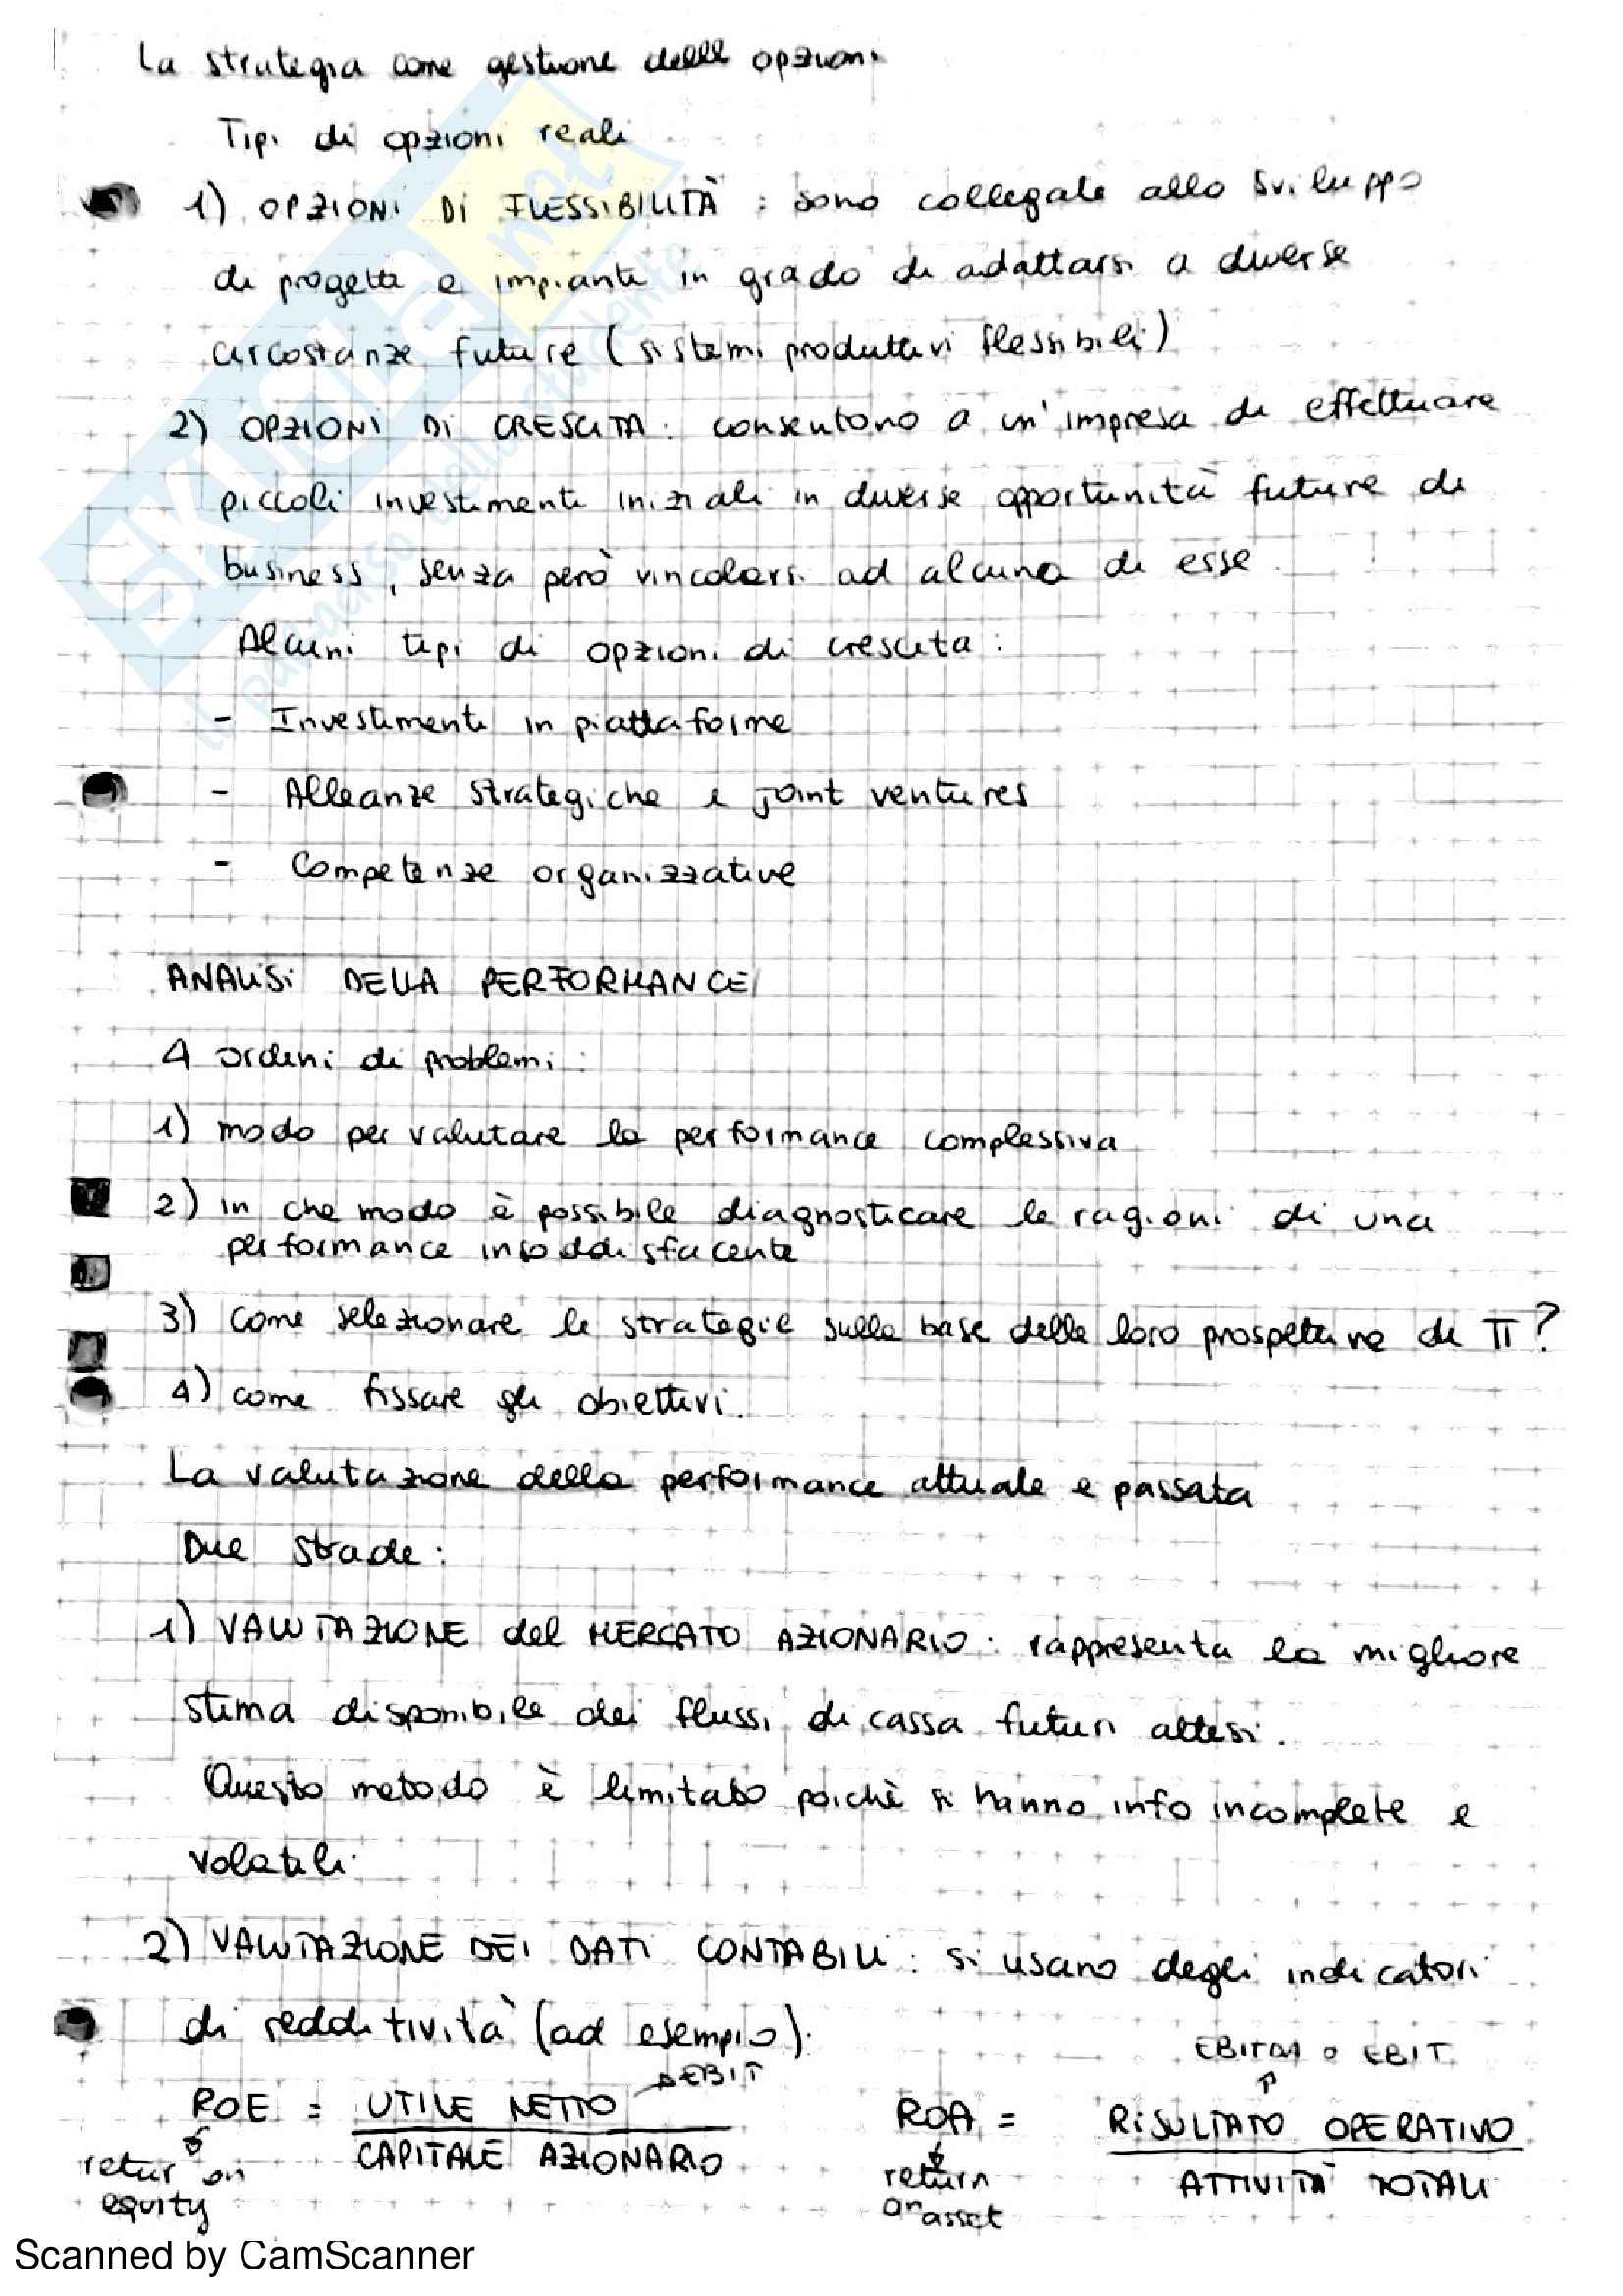 La strategia come gestione delle opzioni
Tipi di opzioni reali
1) OPZIONI DI FLESSIBILITÀ : sono collegate allo sviluppo
di progetti e impianti in grado di adattarsi a diverse
circostanze future (sistemi produttivi flessibili)
2) OPZIONI DI CRESCITA : consentono a un'impresa di effettuare
piccoli investimenti iniziali in diverse opportunità future di
business, senza però vincolarsi ad alcuna di esse
Alcuni tipi di opzioni di crescita :
- Investimenti in piattaforme
- Alleanze strategiche e joint ventures
- Competenze organizzative
ANALISI DELLA PERFORMANCE
4 ordini di problemi :
1) modo per valutare la performance complessiva
2) in che modo è possibile diagnosticare le ragioni di una
performance insoddisfacente
3) Come selezionare le strategie sulla base delle loro prospettive di π ?
4) come fissare gli obiettivi.
La valutazione della performance attuale e passata
Due strade :
1) VALUTAZIONE del MERCATO AZIONARIO : rappresenta la migliore
stima disponibile dei flussi di cassa futuri attesi.
Questo metodo è limitato poichè si hanno info incomplete e
volatili.
2) VALUTAZIONE DEI DATI CONTABILI : si usano degli indicatori
di redditività (ad esempio):
EBIT
EBITDA o EBIT
ROE = UTILE NETTO
CAPITALE AZIONARIO
retur on
equity
ROA = RISULTATO OPERATIVO
ATTIVITÀ TOTALI
return
on asset
SKUOLA.net
il paradiso dello studente
Scanned by CamScanner